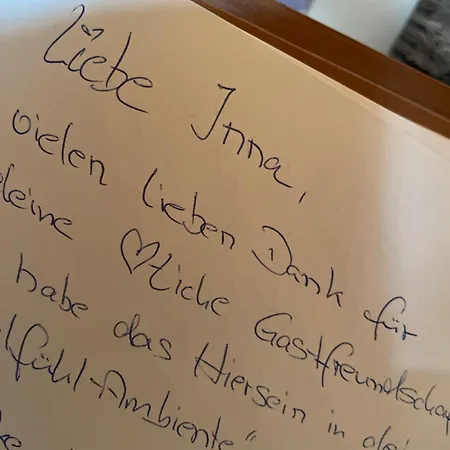 Liebe Inna,
vielen lieben Dank für
deine ♡liche Gastfreundschaf
habe das Hiersein in dei
lfühl-Ambiente"